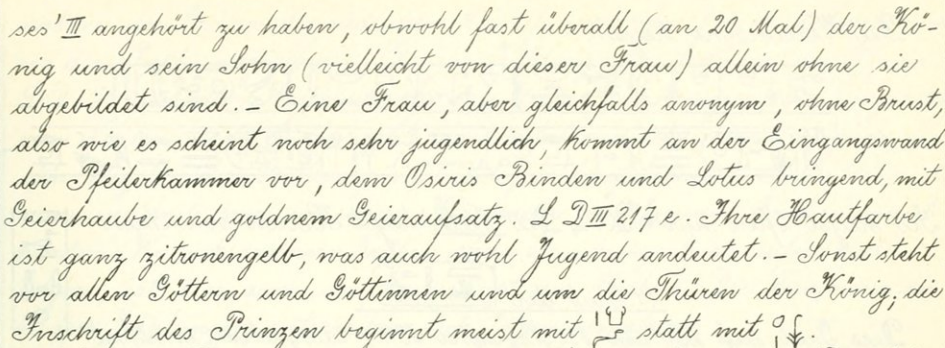 ses' III angehört zu haben, obwohl fast überall (an 20 Mal) der Kö-
nig und sein Sohn (vielleicht von dieser Frau) allein ohne sie
abgebildet sind. – Eine Frau, aber gleichfalls anonym, ohne Brust,
also wie es scheint noch sehr jugendlich, kommt an der Eingangswand
der Pfeilerkammer vor, dem Osiris Binden und Lotus bringend, mit
Geierhaube und goldnem Geieraufsatz. L D III 217 e. Ihre Hautfarbe
ist ganz zitronengelb, was auch wohl Jugend andeutet. – Sonst steht
vor allen Göttern und Göttinnen und um die Thüren der König; die
Inschrift des Prinzen beginnt meist mit statt mit .